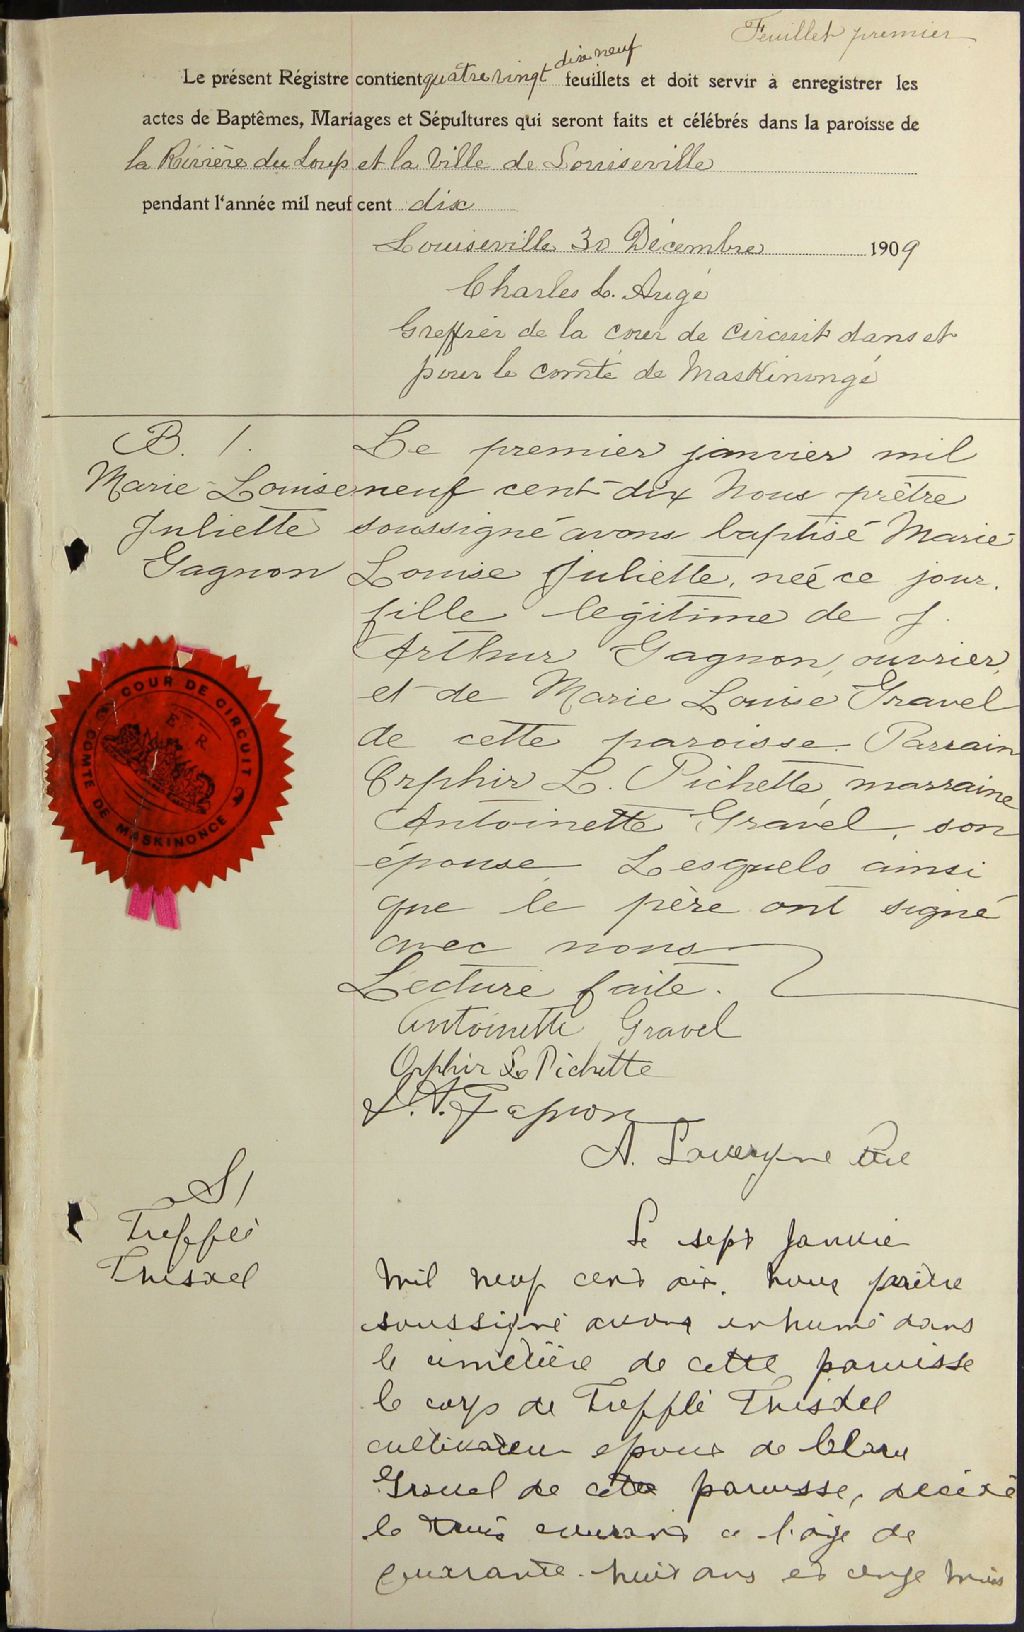 Feuillet premier
dix neuf
Le présent Régistre contient quatre vingt feuillets et doit servir à enregistrer les
actes de Baptêmes, Mariages et Sépultures qui seront faits et célébrés dans la paroisse de
la Rivière du Loup et la ville de Louiseville
pendant l'année mil neuf cent dix
Louiseville 30 Décembre 1909
Charles L. Augé
Greffier de la cour de circuit dans et
pour le comté de Maskinongé
B. 1.
Marie-Louise
Juliette
Gagnon
Le premier janvier mil
neuf cent-dix Nous prêtre
soussigné avons baptisé Marie-
Louise Juliette, née ce jour,
fille légitime de J.
Arthur Gagnon, ouvrier,
et de Marie Louise Gravel
de cette paroisse. Parrain
Orphir L. Pichette, marraine
Antoinette Gravel, son
épouse. Lesquels ainsi
que le père ont signé
avec nous
Lecture faite.
COUR DE CIRCUIT
E R
COMTÉ DE MASKINONGÉ
Antoinette Gravel
Orphir L Pichette
J. A. Gagnon
A. Lavergne Ptre
S1
Trefflé
Thisdel
Le sept Janvier
mil neuf cent dix, nous prêtre
soussigné avons inhumé dans
le cimetière de cette paroisse
le corps de Trefflé Thisdel
cultivateur époux de
Gravel de cette paroisse, décédé
le trois courant a l'âge de
quarante-huit ans et onze mois